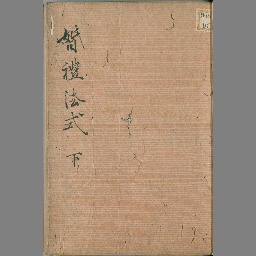 婚禮法式 下